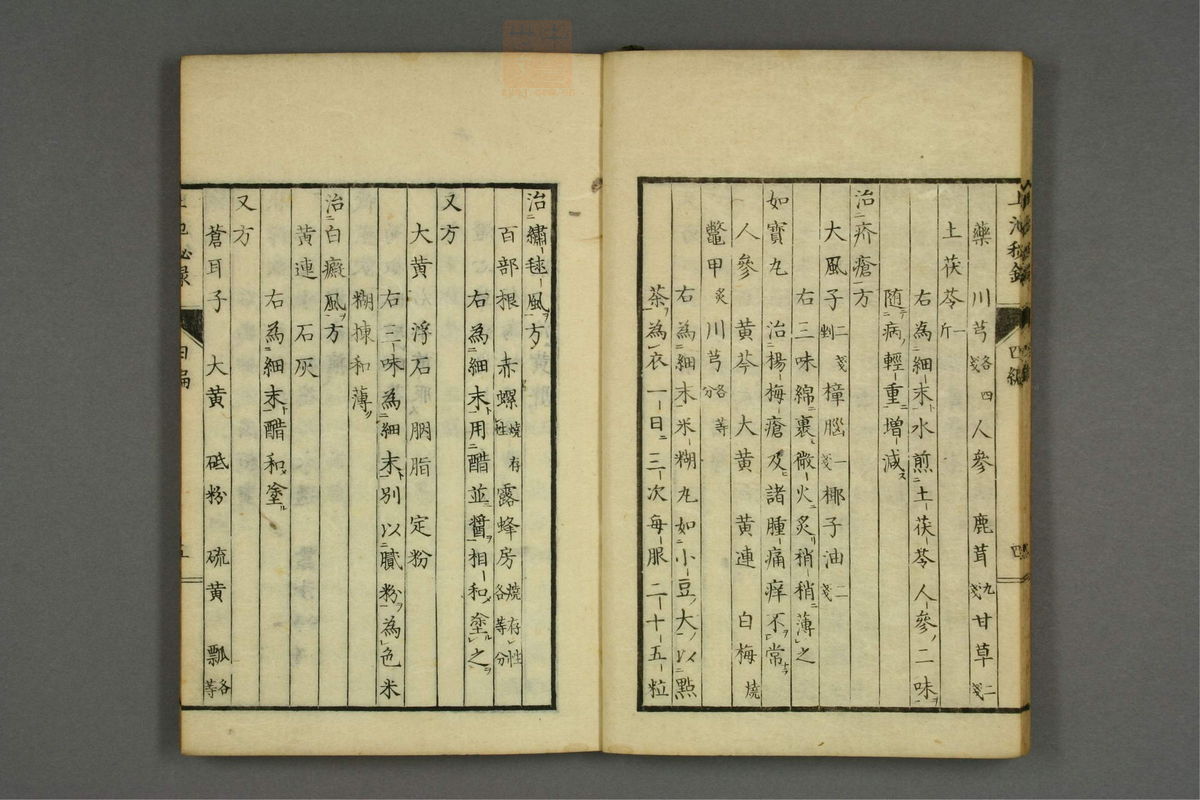 藥 川芎 各四戔 人參 鹿茸 九戔 甘草 二戔
土茯苓 一斤
右為細末水煎土茯苓人參二味
随病輕重増減
治疥瘡方
大風子 二戔 剉 樟腦 一戔 椰子油 二戔
右三味綿裹微火炙稍稍薄之
如寶丸 治楊梅瘡及諸腫痛痒不常
人參 黃芩 大黃 黃連 白梅 燒
鼈甲 炙 川芎 各等分
右為細末米糊丸如小豆大以點
茶為衣一日三次毎服二十五粒
治繡毬風方
百部根 赤螺 燒存性 露蜂房 燒存性 各等分
右為細末用醋並醤相和塗之
又方
大黃 浮石 胭脂 定粉
右三味為細末別以膩粉為色米
糊揀和薄
治白癜風方
黃連 石灰
右為細末醋和塗
又方
蒼耳子 大黃 砥粉 硫黃 瓢 各等
四編
五
四